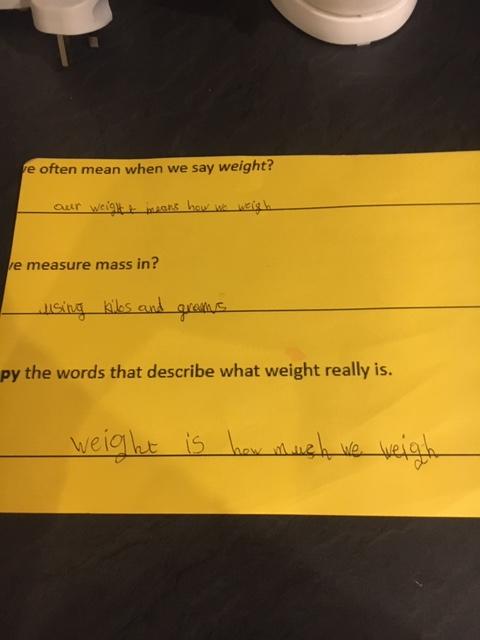 ve often mean when we say weight?
our weight means how we weigh
ve measure mass in?
using kilos and grams
py the words that describe what weight really is.
weight is how much we weigh